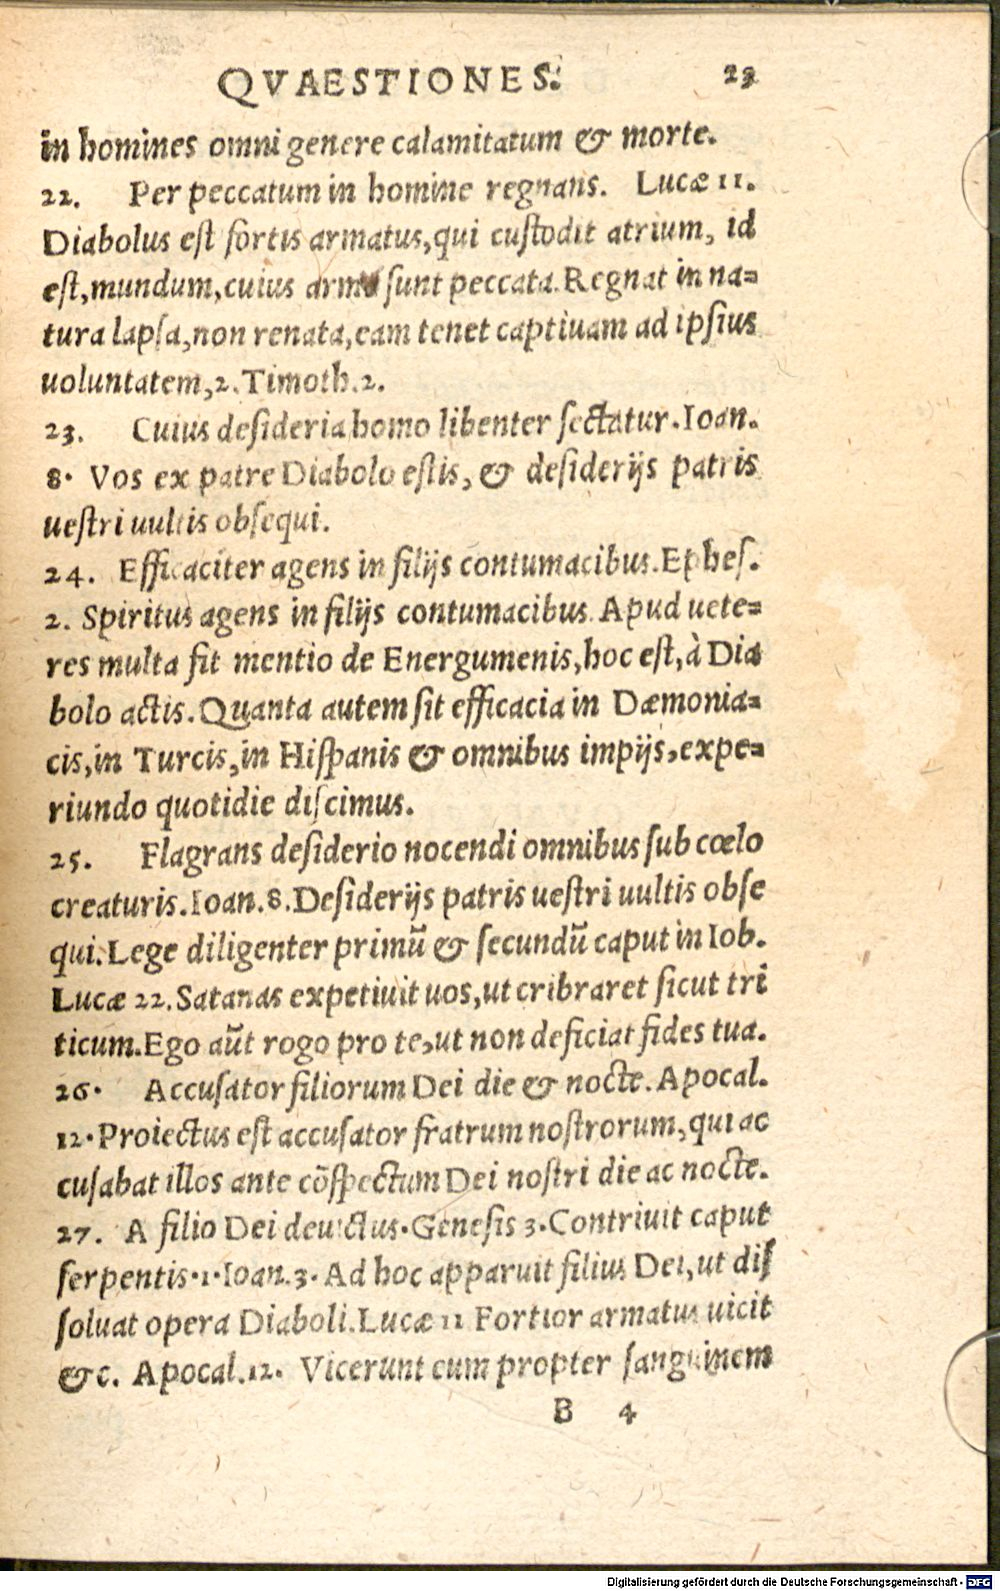 QVAESTIONES. 23
in homines omni genere calamitatum & morte.
22. Per peccatum in homine regnans. Lucæ 11.
Diabolus est fortis armatus, qui custodit atrium, id
est, mundum, cuius arma sunt peccata. Regnat in na=
tura lapsa, non renata, eam tenet captiuam ad ipsius
uoluntatem, 2. Timoth. 2.
23. Cuius desideria homo libenter sectatur. Ioan.
8. Vos ex patre Diabolo estis, & desiderijs patris
uestri uultis obsequi.
24. Efficaciter agens in filijs contumacibus. Ephes.
2. Spiritus agens in filijs contumacibus. Apud uete=
res multa fit mentio de Energumenis, hoc est, à Dia
bolo actis. Quanta autem sit efficacia in Dæmonia=
cis, in Turcis, in Hispanis & omnibus impijs, expe=
riundo quotidie discimus.
25. Flagrans desiderio nocendi omnibus sub cœlo
creaturis. Ioan. 8. Desiderijs patris uestri uultis obse
qui. Lege diligenter primũ & secundũ caput in Iob.
Lucæ 22. Satanas expetiuit uos, ut cribraret sicut tri
ticum. Ego aũt rogo pro te, ut non deficiat fides tua.
26. Accusator filiorum Dei die & nocte. Apocal.
12. Proiectus est accusator fratrum nostrorum, qui ac
cusabat illos ante cõspectum Dei nostri die ac nocte.
27. A filio Dei deuictus. Genesis 3. Contriuit caput
serpentis. 1. Ioan. 3. Ad hoc apparuit filius Dei, ut dis
soluat opera Diaboli. Lucæ 11 Fortior armatus uicit
&c. Apocal. 12. Vicerunt eum propter sanguinem
B 4
Digitalisierung gefördert durch die Deutsche Forschungsgemeinschaft - DFG